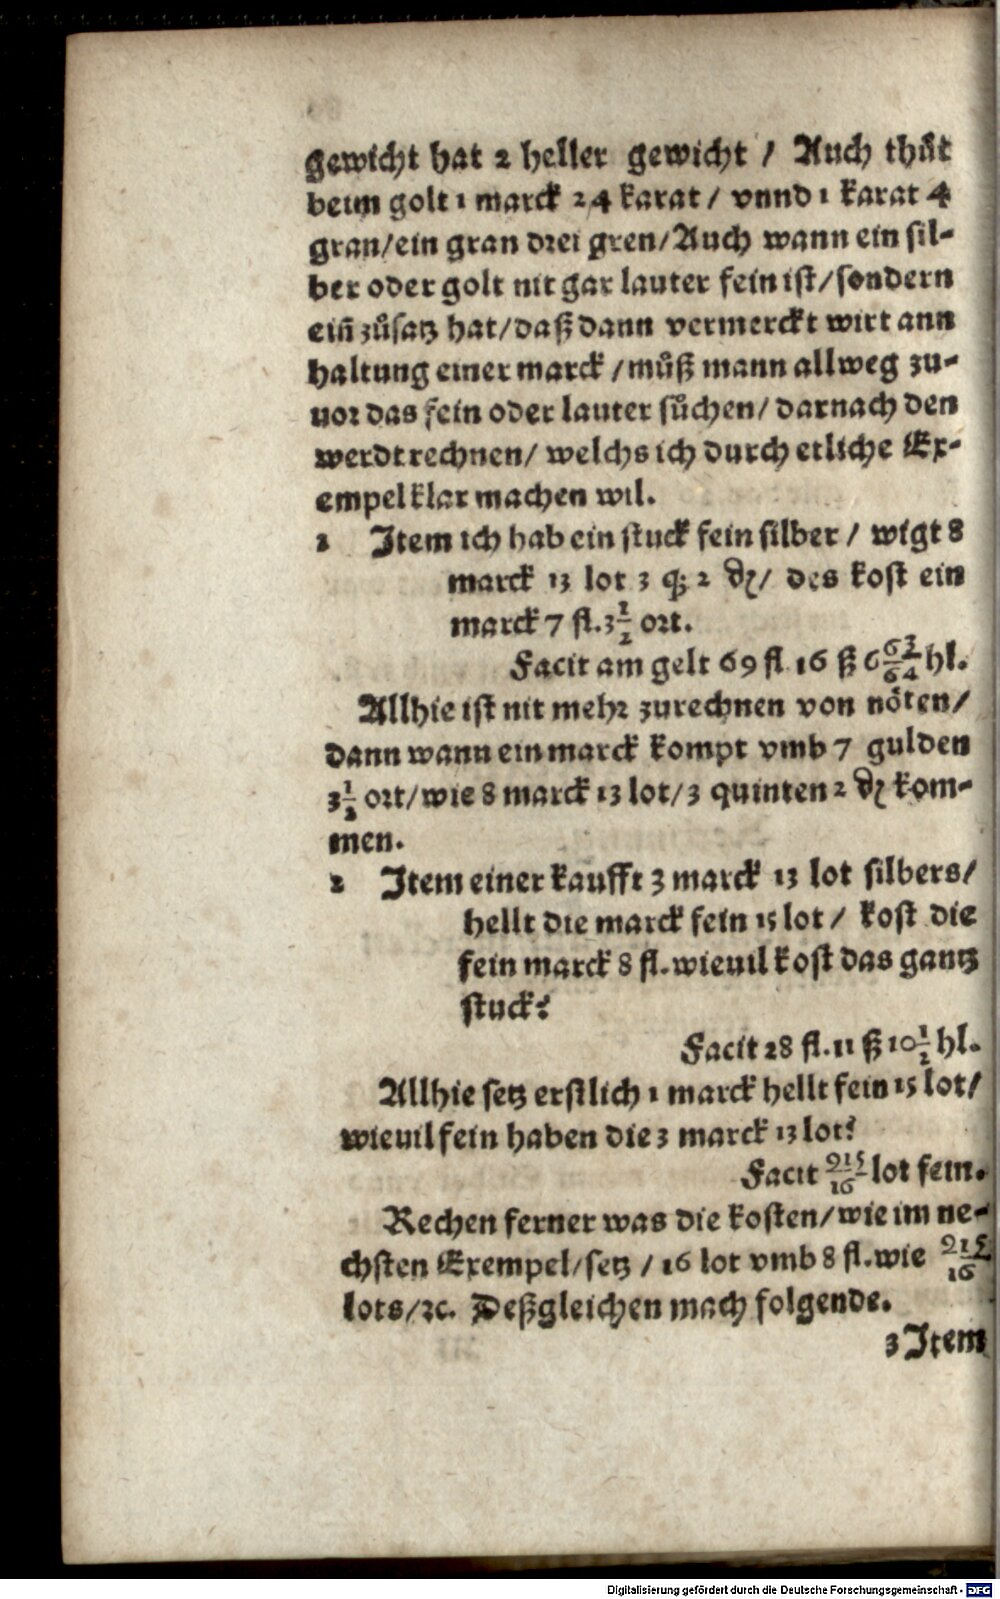 gewicht hat 2 heller gewicht / Auch thůt
beim golt 1 marck 24 karat / vnnd 1 karat 4
gran/ein gran drei gren/Auch wann ein sil-
ber oder golt nit gar lauter fein ist/sondern
ein̄ zůsatz hat/daß dann vermerckt wirt ann
haltung einer marck /můß mann allweg zu-
uor das fein oder lauter sůchen/ darnach den
werdt rechnen/ welchs ich durch etliche Ex-
empel klar machen wil.
1 Item ich hab ein stuck fein silber / wigt 8
marck 13 lot 3 q; 2 ₰/ des kost ein
marck 7 fl.3 1/2 ort.
Facit am gelt 69 fl 16 ß 6 63/64 hl.
Allhie ist nit mehr zurechnen von nöten/
dann wann ein marck kompt vmb 7 gulden
3 1/2 ort/wie 8 marck 13 lot/3 quinten 2 ₰ kom-
men.
2 Item einer kaufft 3 marck 13 lot silbers/
hellt die marck fein 15 lot / kost die
fein marck 8 fl.wieuil kost das gantz
stuck?
Facit 28 fl.11 ß 10 1/2 hl.
Allhie setz erstlich 1 marck hellt fein 15 lot/
wieuil fein haben die 3 marck 13 lot?
Facit 915/16 lot fein.
Rechen ferner was die kosten/wie im ne-
chsten Exempel/setz / 16 lot vmb 8 fl.wie 915/16
lots/ꝛc. Deßgleichen mach folgende.
3 Item
Digitalisierung gefördert durch die Deutsche Forschungsgemeinschaft - DFG